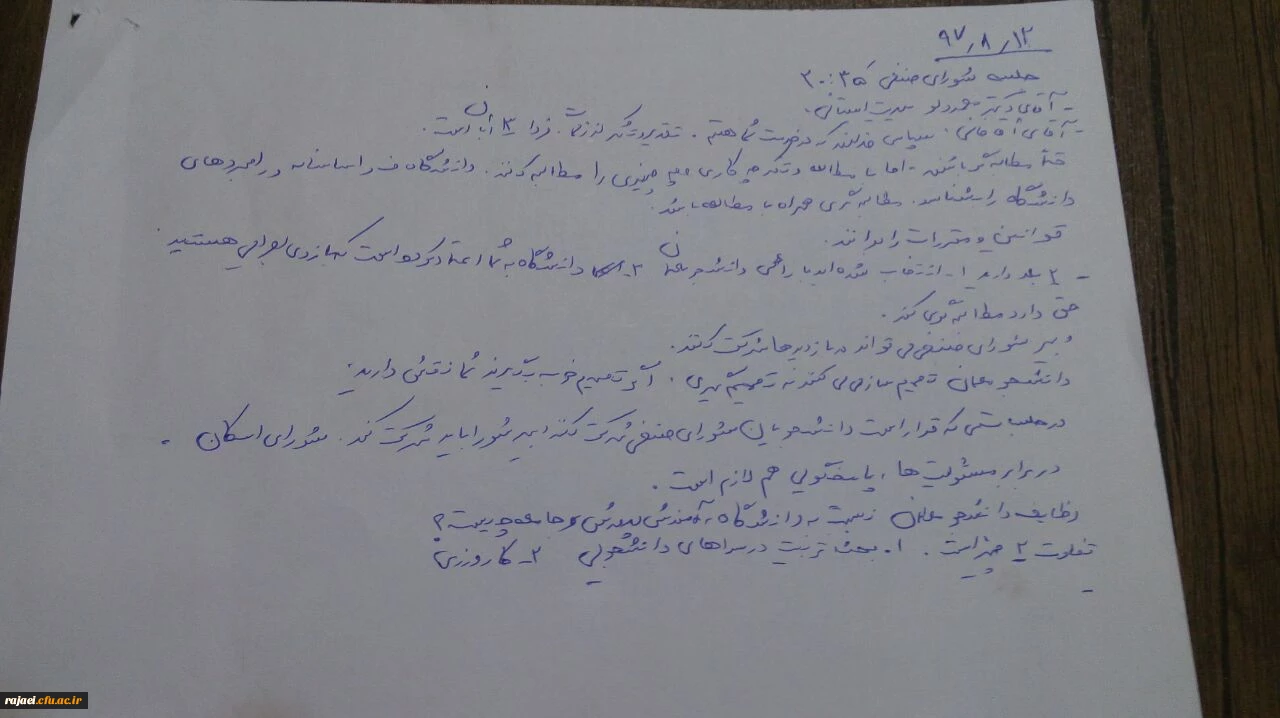 ۹۷٫۸٫۱۲
جلسه شورای صنفی ۲۰:۳۵
- آقای دکتر مدیریت استانی.
- آقای سپاس خداوند که در خدمت شما هستم. فردا ۱۳ آبان است.
حتماً مطالبه‌گر باشند. اما با مطالعه و تفکر چه کاری چه چیزی را مطالبه کنند. دانشگاه اساسنامه و راهبردهای
دانشگاه را بشناسد. مطالبه گری همراه با مطالعه باشد.
قوانین و مقررات را بدانند.
- ۲ بعد دارید ۱- انتخاب شده اید با رأی دانشجو معلمان ۲- دانشگاه به شما اعتماد کرده است که بازوی اجرایی هستید
حق دارد مطالبه گری کند.
دبیر شورای صنفی می تواند در بازدیدها شرکت کنند.
دانشجو معلمان تصمیم سازی می کنند نه تصمیم گیری. اگر تصمیم خوب بگیرند شما نقش دارید.
در جلساتی که قرار است دانشجویان شورای صنفی شرکت کنند دبیر شورا باید شرکت کند. شورای اسکان -
در برابر مسئولیت ها، پاسخگویی هم لازم است.
وظایف دانشجو معلمان نسبت به دانشگاه، آموزش پرورش و جامعه چیست؟
تفاوت ۲ چیز است. ۱- بحث تربیت در سراهای دانشجویی ۲- کارورزی
rajaei.cfu.ac.ir